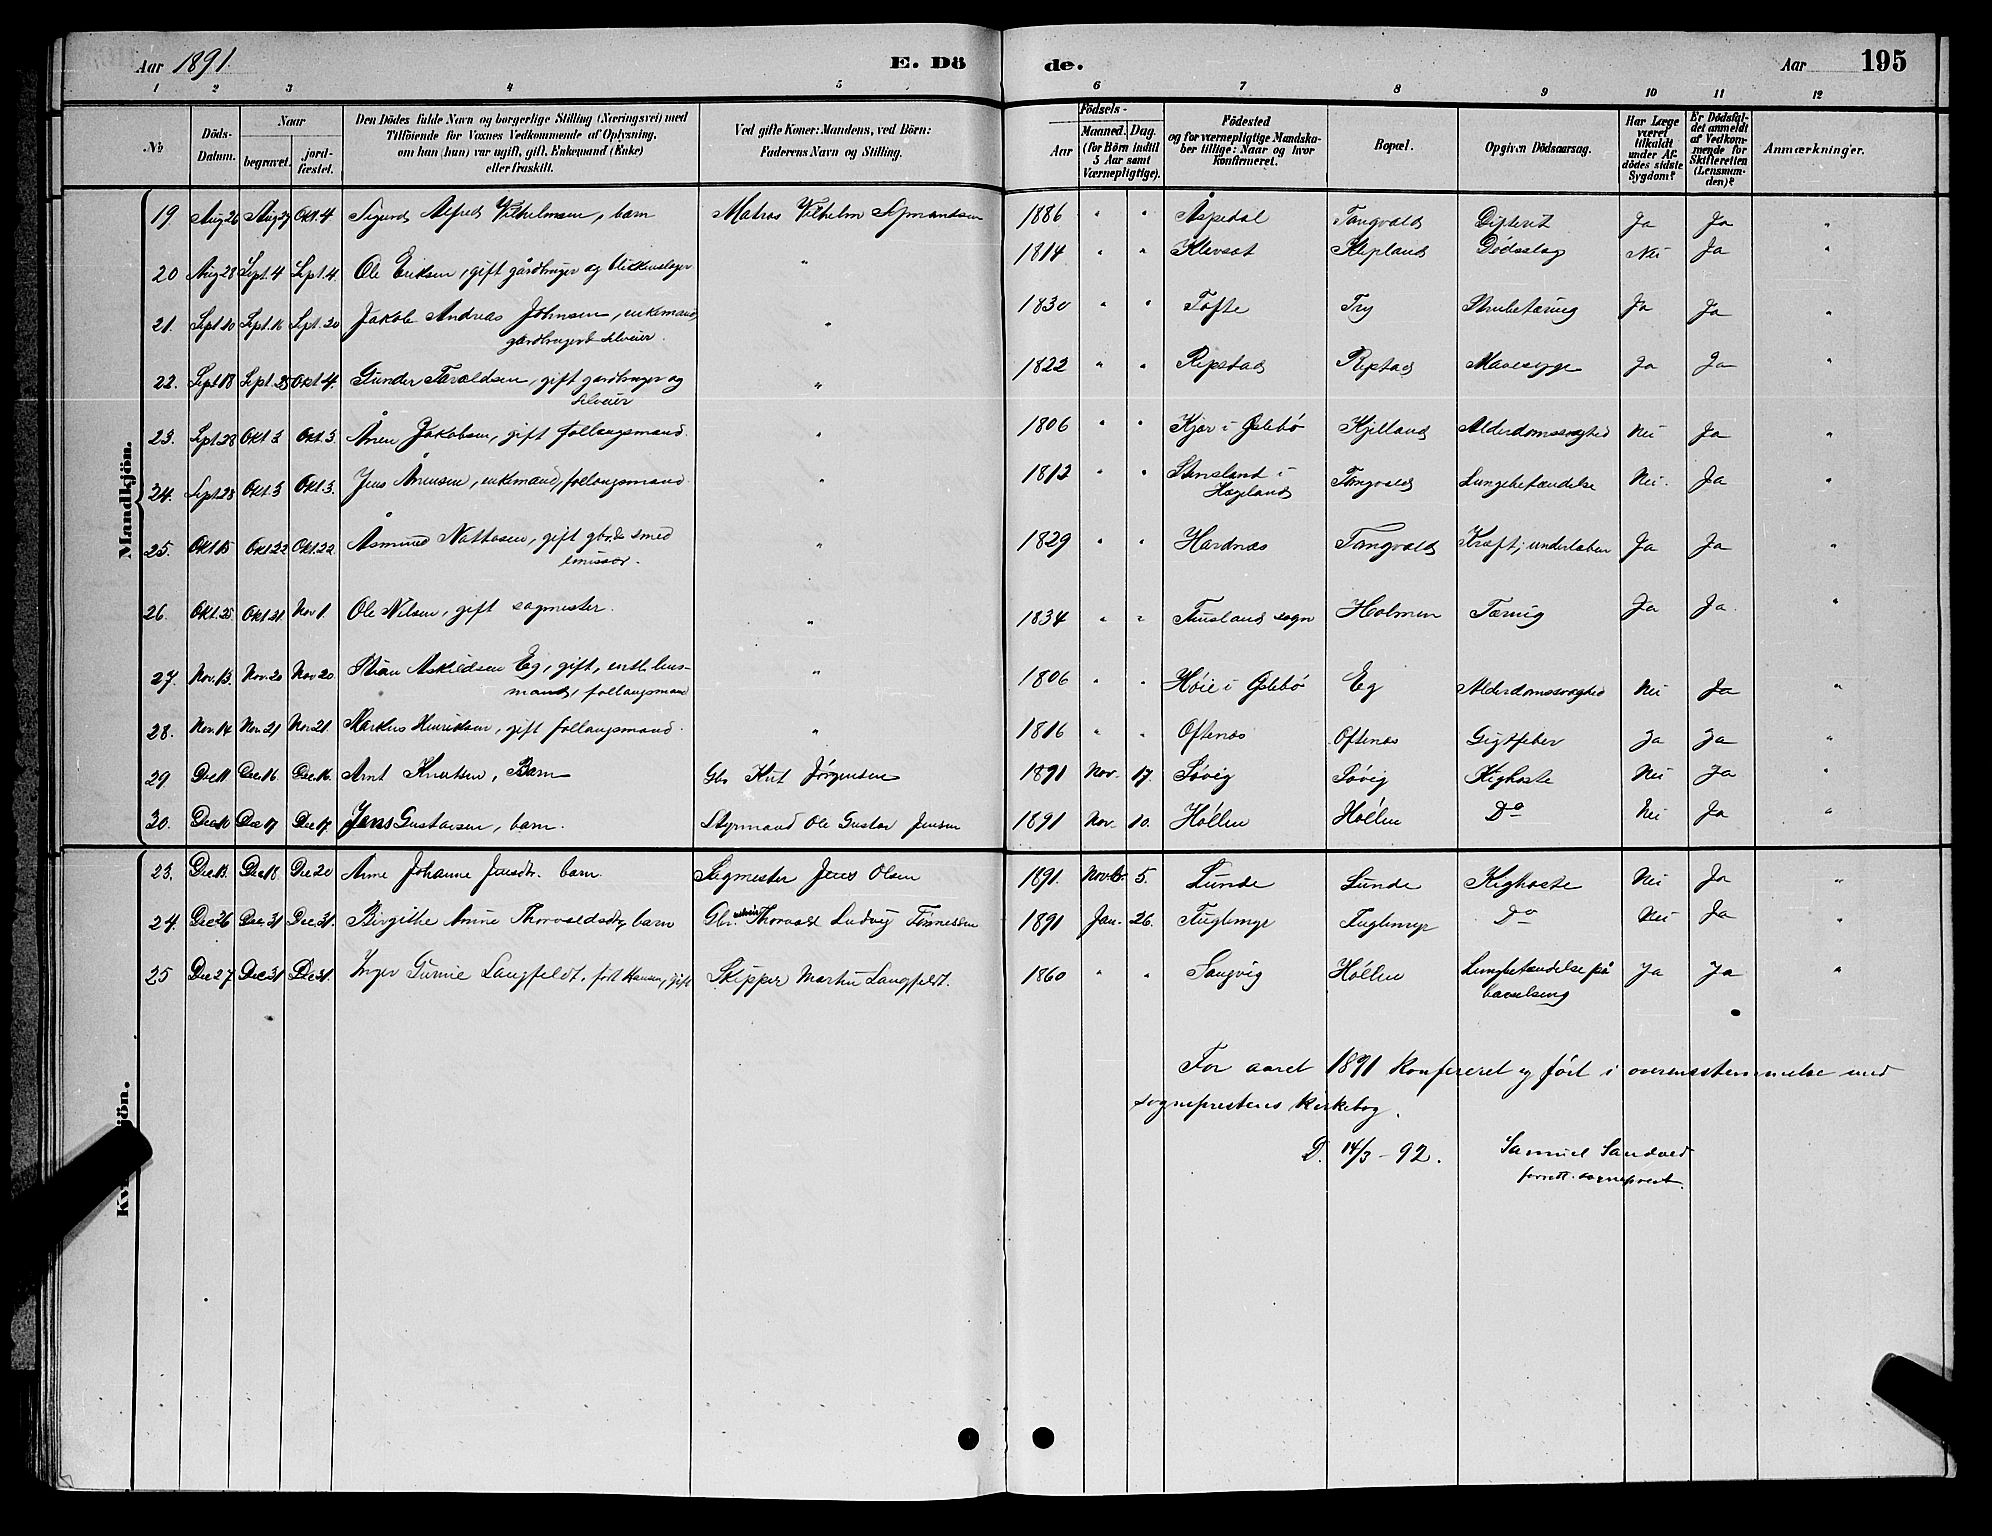 Aar 1891. E. Dö de. Aar 195
1 2 3 4 5 6 7 8 9 10 11 12
No Döds-Datum. Naar begravet. jord-fæstet. Den Dödes fulde Navn og borgerlige Stilling (Næringsvei) med Tilföiende for Voxnes Vedkommende af Oplysning, om han (hun) var ugift, gift, Enkemand (Enke) eller fraskilt. Ved gifte Koner: Mandens, ved Börn: Faderens Navn og Stilling. Födsels- Aar Maaned. Dag. (for Börn indtil 5 Aar samt Værnepligtige). Födested og for værnepligtige Mandska-ber tillige: Naar og hvor Konfirmeret. Bopæl. Opgiven Dödsaarsag. Har Læge været tilkaldt under Af-dödes sidste Sygdom? Er Dödsfal-det anmeldt af Vedkom-mende for Skifteretten (Lensman-den)? Anmærkninger.
Mandkjön.
19. Aug 26 Aug 29 Okt. 4 Sigurd Alfred Vilhelmsen, barn Matros Vilhelm 1886 " " Åspedal Tangvald Difterit Ja Ja "
20 Aug 28 Sept. 4 Sept. 4. Ole Eriksen, gift gårdbruger og blikkenslager " 1814 " " Klevset Klepland Dødsslag Nei Ja "
21. Sept. 10 Sept. 16 Sept. 20 Jakob Andreas Johnsen, enkemand, " 1830 " " Tofte Try Strubetæring Ja Ja "
gårdbruger & selveier.
22. Sept. 18 Sept. 25 Okt. 4. Gunder Taraldsen, gift gårdbruger og " 1822 " " Repstad Repstad Mavesyge Ja Ja "
selveier
23. Sept. 28 Okt 3 Okt. 3. Ånen Jakobsen, gift follaugsmand. " 1806 " " Kjær i Øslebø Kjelland Alderdomssvaghed Nei Ja "
24. Sept. 28 Okt. 3 Okt. 3. Jens Ånensen, enkemand, follaugsmand " 1812 " " Stensland i Tangvald Lungebetændelse Nei. Ja "
Hægeland
25. Okt. 15 Okt. 22 Okt. 22 Åsmund Nottosen, gift gbr. & smed " 1829 " " Hardnes Tangvald Kræft i underlæben Ja Ja "
emissær.
26. Okt. 25 Okt 31. Nov 1. Ole Nilsen, gift sagmester. " 1834 " " Finsland sogn Holmen Tæring Ja Ja. "
27. Nov. 13. Nov. 20 Nov 20. Stian Askildsen Eg, gift, hus- " 1806 " " Høie i Øslebø Eg Alderdomssvaghed Nei Ja "
mand, follaugsmand
28. Nov. 14 Nov. 21 Nov. 21. Markus Henriksen, gift follaugsmand. " 1816 " " Oftenes Oftenes Gigtfeber Ja Ja "
29. Dec 11 Dec. 16 Dec. 16. Arnt Knutsen, Barn Gbr Knut Jørgensen 1891 Nov. 17. Søvig Søvig Kighoste Nei Ja "
30. Dec. 10 Dec 17 Dec 17. Jens Gustavsen, barn. Styrmand Ole Gustav Jensen 1891 Nov. 10. Høllen Høllen Do Nei Ja "
Kv ön.
23. Dec. 13. Dec 18. Dec 20 Anne Johanne Jensdtr. barn. Sagmester Jens Olsen 1891. Novb. 5. Lunde Lunde Kighoste Nei Ja "
24. Dec 26 Dec. 31 Dec. 31. Birgithe Amine Thorvaldsdtr, barn Gbr. Thorvald Ludvig Tønnessen 1891 Jan. 26. Fuglemyr Fuglemyr Do Nei Ja "
25 Dec 27 Dec 31 Dec 31. Inger Gurine Langfeldt, født Hansen, gift Skipper Martin Langfeldt. 1860 " " Langvig Høllen Lungbetændelse på Ja Ja "
barselseng
For aaret 1891 konfereret og ført i overensstemmelse med
sogneprestens kirkebog.
D. 14/3 - 92. Samuel Sandved
forrett. sogneprest.